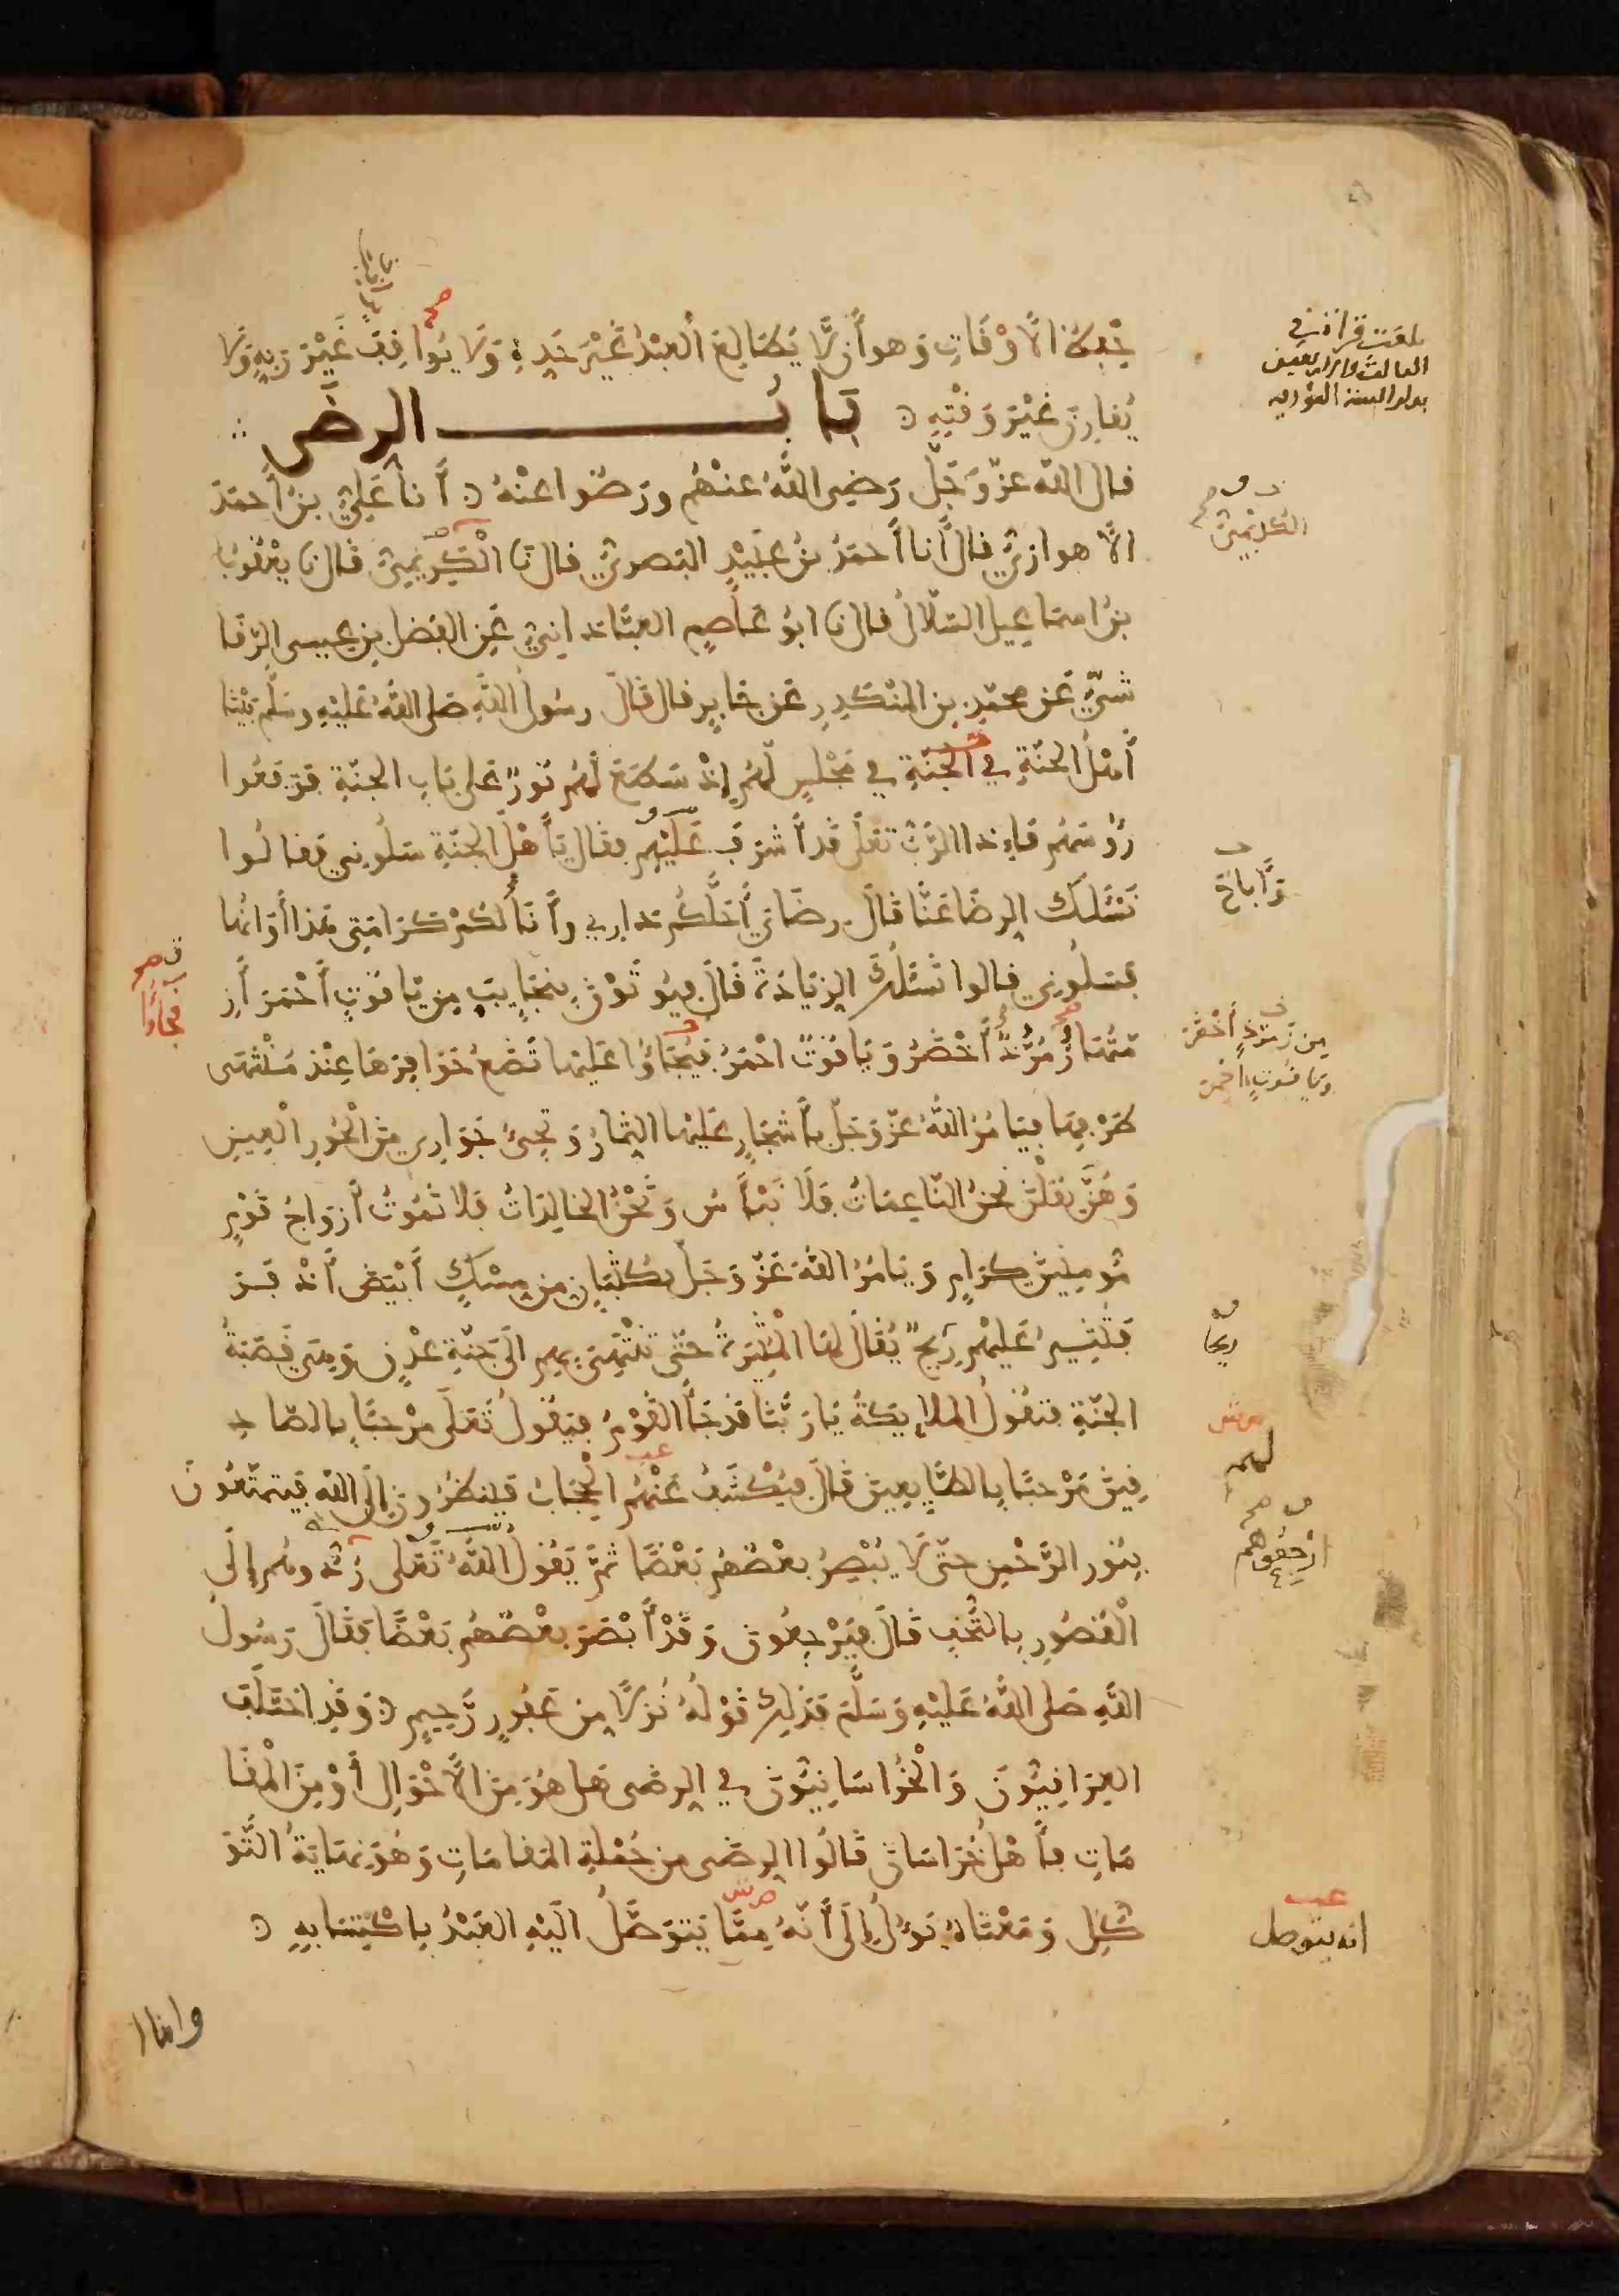 حِفْظُ الْأَوْقَاتِ وَهو أَن لَّا يُطَالِعَ الْعَبْدُ غَيْرَ حَدِّهِ وَلَا يُوَافِقَ غَيْرَ رَبِّهِ وَلَا
يُقَارِنَ غَيْرَ وَقْتِهِ
بَابُ الرضى
قال الله عزّ وَجَلَّ رَضِيَ اللَّهُ عَنْهُم ورَضُوا عنْهُ أَنا عَلِيُّ بنُ أَحمَدَ
الأهوازيُّ قال أَنا أَحمَدُ بنُ عُبَيْدٍ البَصريُّ قال نَا الْكُدَيْمِيُّ قَال نا يَعْقُوبُ
بنُ اسمَاعِيل السّلّالُ قال نا ابُو عَاصِمٍ العَبَّادَانِيُّ عَنِ الفَضل بنِ عِيسى الرّقَا
شيِّ عَن محمّدِ بنِ المُنْكَدِرِ عَن جَابِرٍ قال قَالَ رسُولُ اللَّهِ صَلى اللَّهُ عَلَيْهِ وسَلَّمَ بَيْنَا
أَهْلُ الجنّةِ في الْجَنَّةِ في مَجْلِسٍ لَّهُم إِذْ سَطَعَ لَهُم نُورٌ عَلى بَابِ الجنّةِ فَرَفَعُوا
رُؤُسَهُم فَإِذا الرَّبُّ تَعَلى قَد أَشرَفَ عَلَيْهِم فقَال يَأَهْلَ الجَنّةِ سَلُونِي فقالُوا
نَسْئَلُكَ الرضَا عَنَّا قَالَ رضَايَ أَحَلَّكُم دَارِي وأَنَالَكُمْ كَرَامَتِي هَذا أَوَانُهَا
فَسَلُونِي قالوا نَسْئَلُكَ الزيَادَةَ قَالَ فيُوتَوْنَ بِنَجَايِبَ مِن يّاقُوتٍ أَحْمَرَ أَزِ
مَّتُهَا زُمُرُّدٌ أَخْضَرُ وَيَاقُوتٌ احْمَرُ فَجَاؤُا عَلَيْهَا تَضَعُ حَوَافِرَهَا عِنْدَ مُنْتَهَى
طَرْفِهَا فيَامُرُ اللَّهُ عَزّ وَجَلّ بأَشجَارٍ عَلَيْهَا الثِمَارُ وَتَجِيءُ جَوَارِي مِنَ الْحُورِ الْعِينِ
وَهُنَّ يَقُلْنَ نَحنُ النّاعِمَاتُ فَلَا نَبْأَسُ وَنَحْنُ الخالِدَاتُ فَلا نَمُوتُ أَزوَاجُ قَوْمٍ
مُّومِنِينَ كِرَامٍ وَيَامُرُ اللَّهُ عَزّ وَجَلّ بكُثْبَانٍ مِن مِسْكٍ أَبْيَضَ أَذْفَرَ
فَتُثِيرُ عَلَيْهِم رِيحٌ يُقَالُ لهَا الْمُثِيرَةُ حَتّى تَنْتَهِيَ بِهِم الَى جَنّةِ عَدْنٍ وَهِيَ قَصَبَةُ
الجَنّةِ فتَقُولُ الملاَيِكَةُ يَا رَبَّنَا قَدْ جَاءَ القَوْمُ فيَقُولُ تَعَلى مَرْحَبًا بِالصّادِ
قِينَ مَرْحَبًا بِالطَّايِعِينَ قَالَ فيُكْشَفُ عَنْهُمُ الْحِجَابُ فَيَنظُرُونَ إِلَى اللهِ فَيَتمَتّعُونَ
بِنُورِ الرَّحْمنِ حَتّى لَا يُبْصِرُ بَعْضُهُم بَعْضًا ثمَّ يَقُولُ اللهُ تَعَلى رُدُّوهُم إِلَى
الْقُصُورِ بِالتُّحَفِ قَالَ فَيَرْجِعُونَ وَقَدْ أَبْصَرَ بَعْضُهُم بَعْضًا فقَالَ رَسُولُ
اللهِ صَلى اللهُ عَلَيْهِ وَسَلَّمَ فَذَلِكَ قَوْلُهُ نُزُلًا مِن غَفُورٍ رَّحِيمٍ وَقَدِ اخْتَلَفَ
العِرَاقِيُّونَ وَالْخُرَاسَانِيُّونَ في الرِضَى هَل هُوَ مِنَ الْأَحْوَالِ أَوْ مِنَ الْمَقَا
مَاتِ فأَهْلُ خُرَاسَانَ قَالُوا الرِضَى مِن جُمْلَةِ المَقامَاتِ وَهُوَ نِهَايَةُ التَّوَ
كُّلِ وَمَعْنَاهُ يَؤُلُ إِلَى أَنَّهُ مِمَّا يَتَوَصَّلُ الَيْهِ العَبْدُ بِاكْتِسَابِهِ
بلغت قراءة في
الثالث والاربعين
الكُدَيْمِيُّ
فَجَاؤُا
مِن زُمُرُّدٍ أَخْضَرَ
ويَاقُوتٍ احْمَرَ
ريحًا
لهم
ارْجِعُوهم
انه يتوصل
واما ا